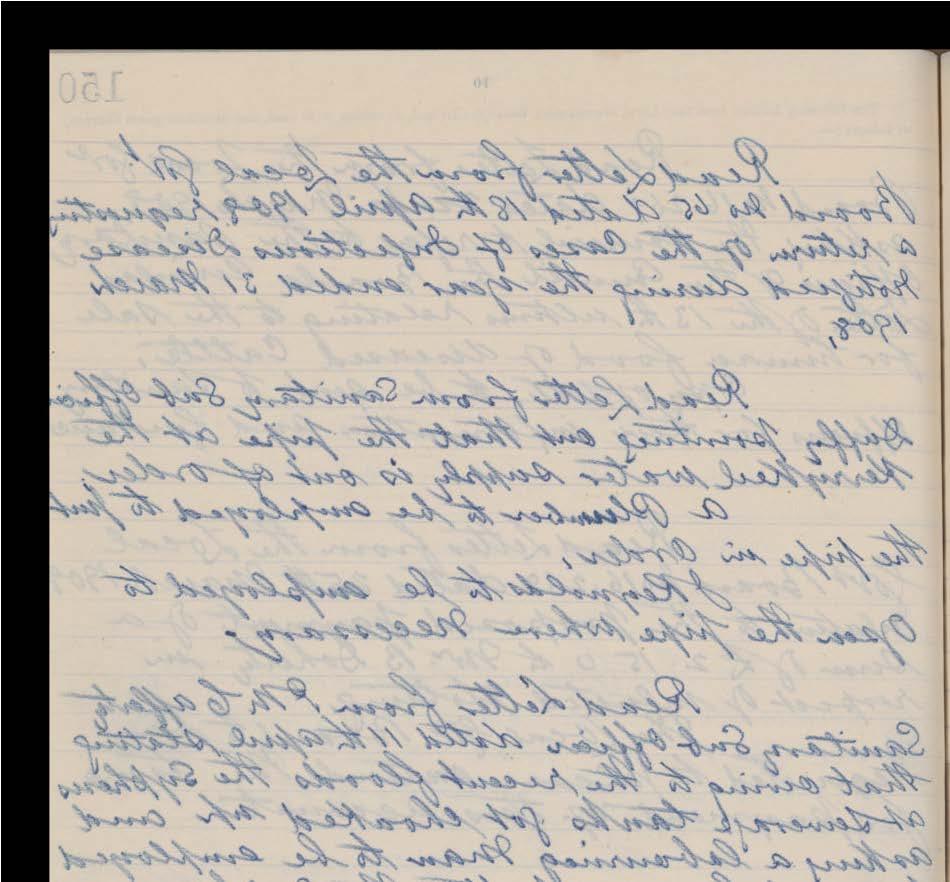 150
Read Letter from the Local Govt
Board No 65 dated 18th April 1908 requesting
a return of the Cases of Infectious Disease
notified during the year ended 31 March
1908,
Read Letter from Sanitary Sub Officer
Duffy pointing out that the pipe at the
Kerrykeel water supply is out of order,
a Plumber to be employed to put
the pipe in Order,
J Reynolds to be employed to
Open the pipe where necessary,
Read Letter from P McCafferty
Sanitary Sub Officer dated 11th April stating
that owing to the recent floods the Syphons
at sewerage tanks got choaked up and
asking a labouring man to be employed